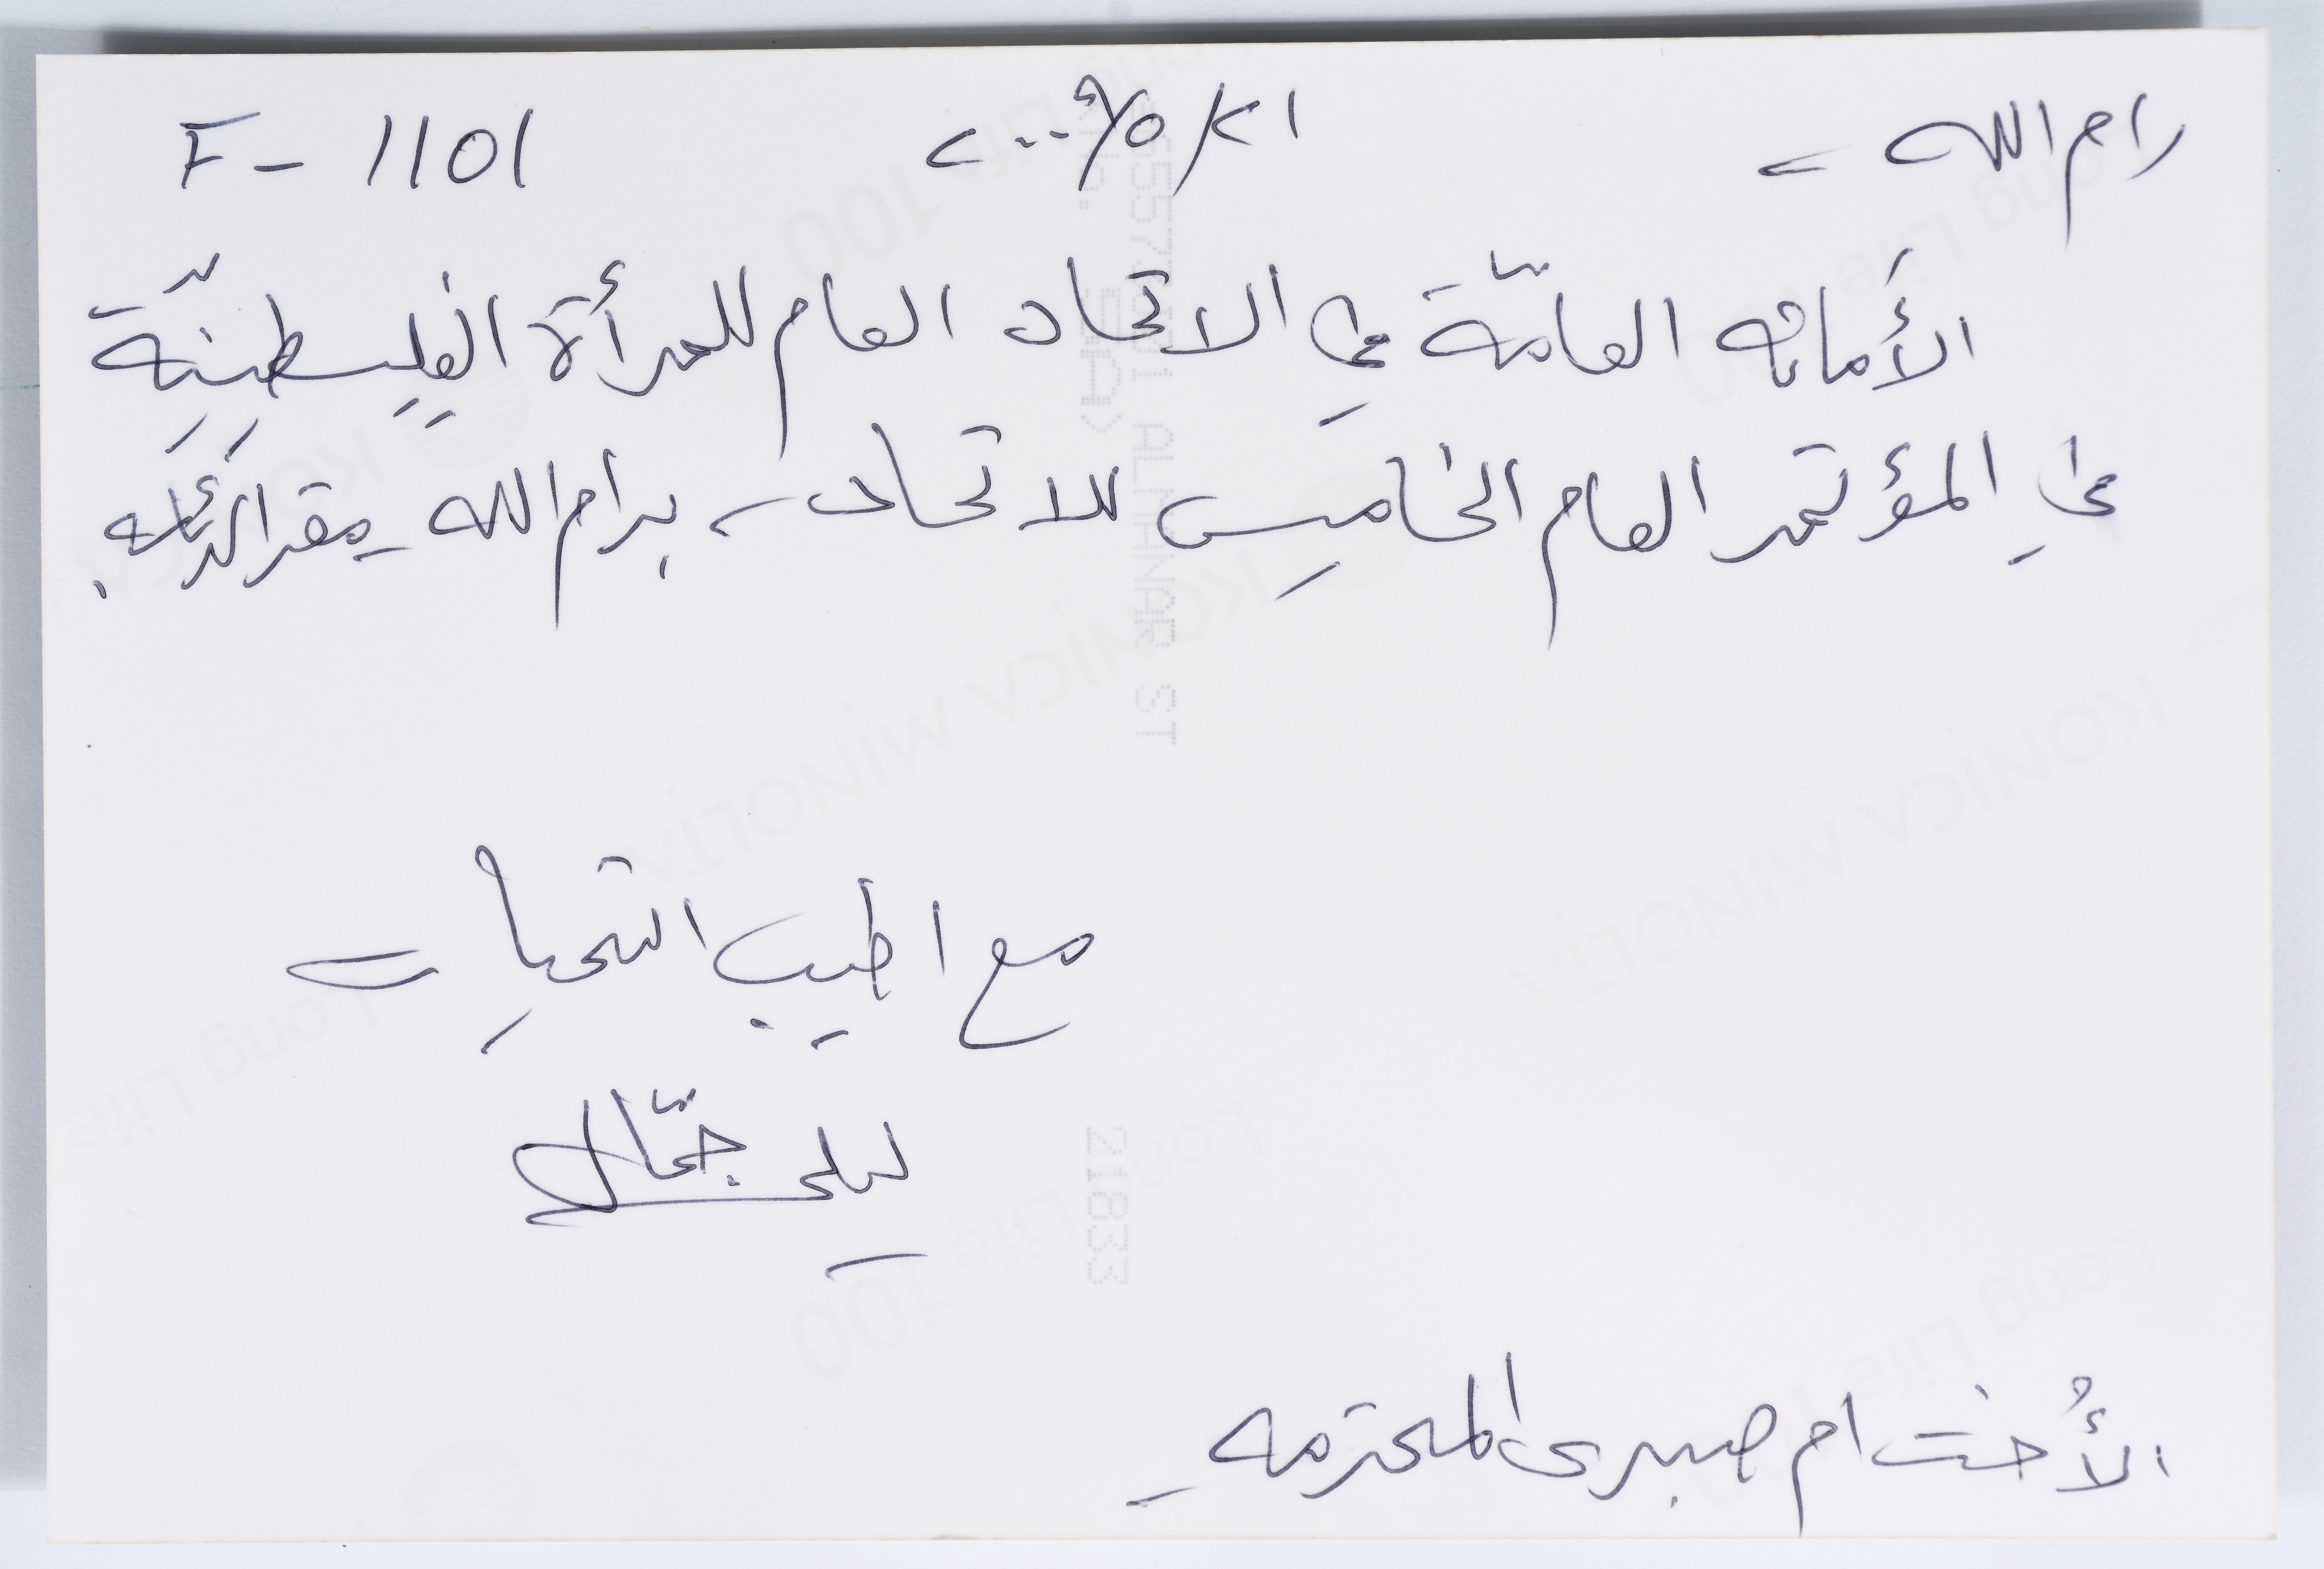 رام الله - ٢١/٥/٢٠٠٩ F - 1101
الأمانه العامّة في الاتحاد العام للمرأة الفلسطينيّة
في المؤتمر العام الخامس للاتحاد - برام الله - مقر الرئاسه.
مع اطيب التحيات
ليلى جمّال
الأخت ام صبري المحترمه -
KONICA MINOLTA
Long Life 100
21833